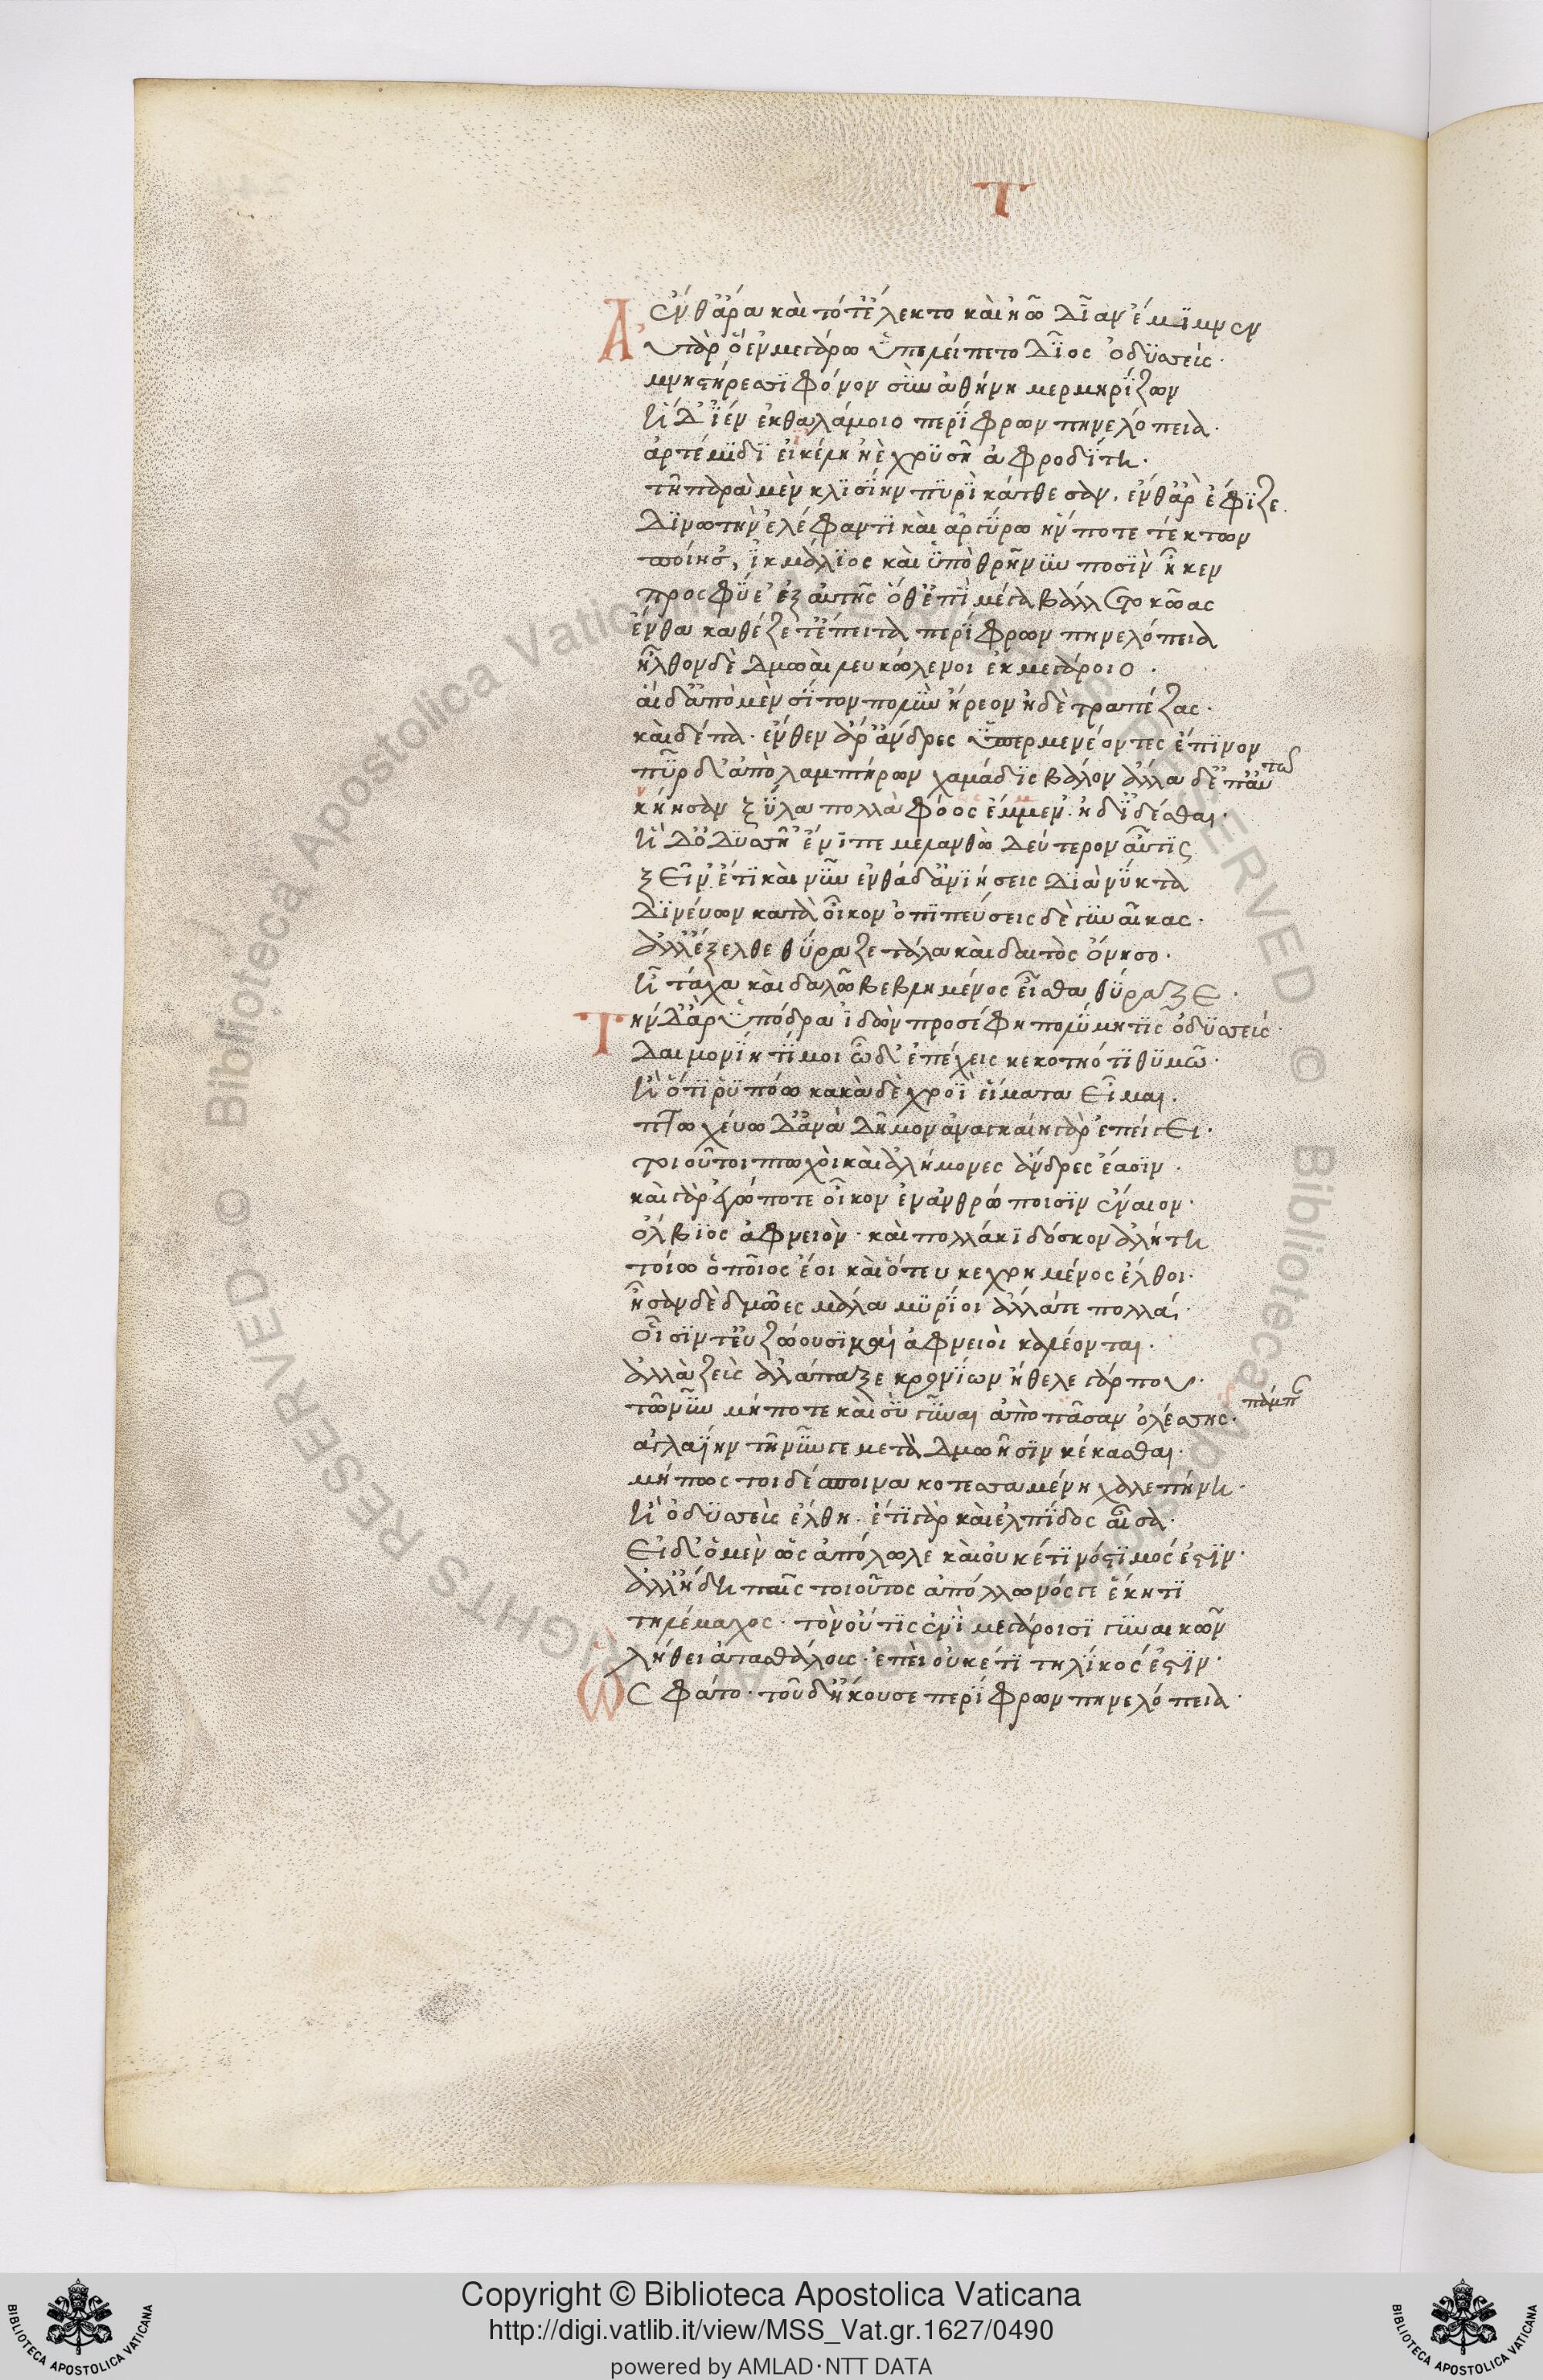 Τ
ἔνθ' ἄρα καὶ τότ' ἔλεκτο καὶ ἠῶ δῖαν ἔμιμνεν
Αὐτὰρ ὁ ἐν μεγάρω ὑπελείπετο δῖος ὀδυσσεύς·
μνηστήρεσσι φόνον σὺν ἀθήνη μερμηρίζων
ἡ δ' ἴεν ἐκ θαλάμοιο περίφρων πηνελόπεια·
ἀρτέμιδι εἰκέλη ἠὲ χρυσῆ ἀφροδίτη·
τῆ παρὰ μὲν κλισίην πυρὶ κάτθεσαν, ἔνθ' ἄρ' ἐφῖζε.
δινωτὴν ἐλέφαντι καὶ ἀργύρω ἥν ποτε τέκτων
ποίησ', ἰκμάλιος καὶ ὑπὸ θρῆνυν ποσὶν ἧκεν
προσφυέ' ἐξ αὐτῆς ὅθ' ἐπὶ μέγα βάλλετο κῶας
ἔνθα καθέζετ' ἔπειτα περίφρων πηνελόπεια
ἦλθον δὲ δμωαὶ λευκώλενοι ἐκ μεγάροιο·
αἱ δ' ἀπὸ μὲν σῖτον πολὺν ἥρεον ἠδὲ τραπέζας·
καὶ δέπα· ἔνθεν ἄρ' ἄνδρες ὑπερμενέοντες ἔπινον
πῦρ δ' ἀπὸ λαμπτήρων χαμάδις βάλον ἄλλα δ' ἐπ' αὐτῶν
νήησαν ξύλα πολλὰ φόος ἔμμεν· ἠδὲ δέεσθαι·
ἡ δ' ὀδυσῆ' ἐνένιπε μελανθὼ δεύτερον αὖτις
ξεῖν' ἔτι καὶ νῦν ἐνθάδ' ἀνιήσεις διὰ νύκτα
δινεύων κατὰ οἶκον ὀπιπεύσεις δὲ γυναῖκας·
ἀλλ' ἔξελθε θύραζε τάλαν καὶ δαιτὸς ὄνησο·
ἢ τάχα καὶ δαλῶ βεβλημένος εἶσθα θύραζε·
Τὴν δ' ἄρ' ὑπόδρα ἰδὼν προσέφη πολύμητις ὀδυσσεύς·
δαιμονίη τί μοι ὧδ' ἐπέχεις κεκοτηότι θυμῶ·
ἢ ὅτι ῥυπόω κακὰ δὲ χροῒ εἵματα εἷμαι·
πτωχεύω δ' ἀνὰ δῆμον ἀναγκαίη γὰρ ἐπείγει·
τοιοῦτοι πτωχοὶ καὶ ἀλήμονες ἄνδρες ἔασιν·
καὶ γὰρ ἐγώ ποτε οἶκον ἐν ἀνθρώποισιν ἔναιον·
ὄλβιος ἀφνειὸν· καὶ πολλάκι δόσκον ἀλήτη
τοίω ὁποῖος ἔοι καὶ ὅτευ κεχρημένος ἔλθοι·
ἦσαν δὲ δμῶες μάλα μυρίοι ἄλλά τε πολλά·
οἷσίν τ' εὖ ζώουσι καὶ ἀφνειοὶ καλέονται·
ἀλλὰ ζεὺς ἀλάπαξε κρονίων ἤθελε γάρ που·
τῶ νῦν μήποτε καὶ σὺ γύναι ἀπὸ πᾶσαν ὀλέσσης·
ἀγλαΐην τῆ νῦν γε μετὰ δμωῆσιν κέκασθαι·
μήπως τοι δέσποινα κοτεσσαμένη χαλεπήνη·
ἢ ὀδυσσεὺς ἔλθη· ἔτι γὰρ καὶ ἐλπίδος αἶσα·
εἰ δ' ὁ μὲν ὣς ἀπόλωλε καὶ οὐκέτι νόστιμός ἐστιν·
ἀλλ' ἤδη παῖς τοιοῦτος ἀπόλλωνός γε ἕκητι
τηλέμαχος· τὸν οὔτις ἐνὶ μεγάροισι γυναικῶν
λήθει ἀτασθάλοις· ἐπεὶ οὐκέτι τηλίκος ἐστιν·
Ὣς φάτο· τοῦ δ' ἤκουσε περίφρων πηνελόπεια·
Copyright © Biblioteca Apostolica Vaticana
http://digi.vatlib.it/view/MSS_Vat.gr.1627/0490
powered by AMLAD·NTT DATA